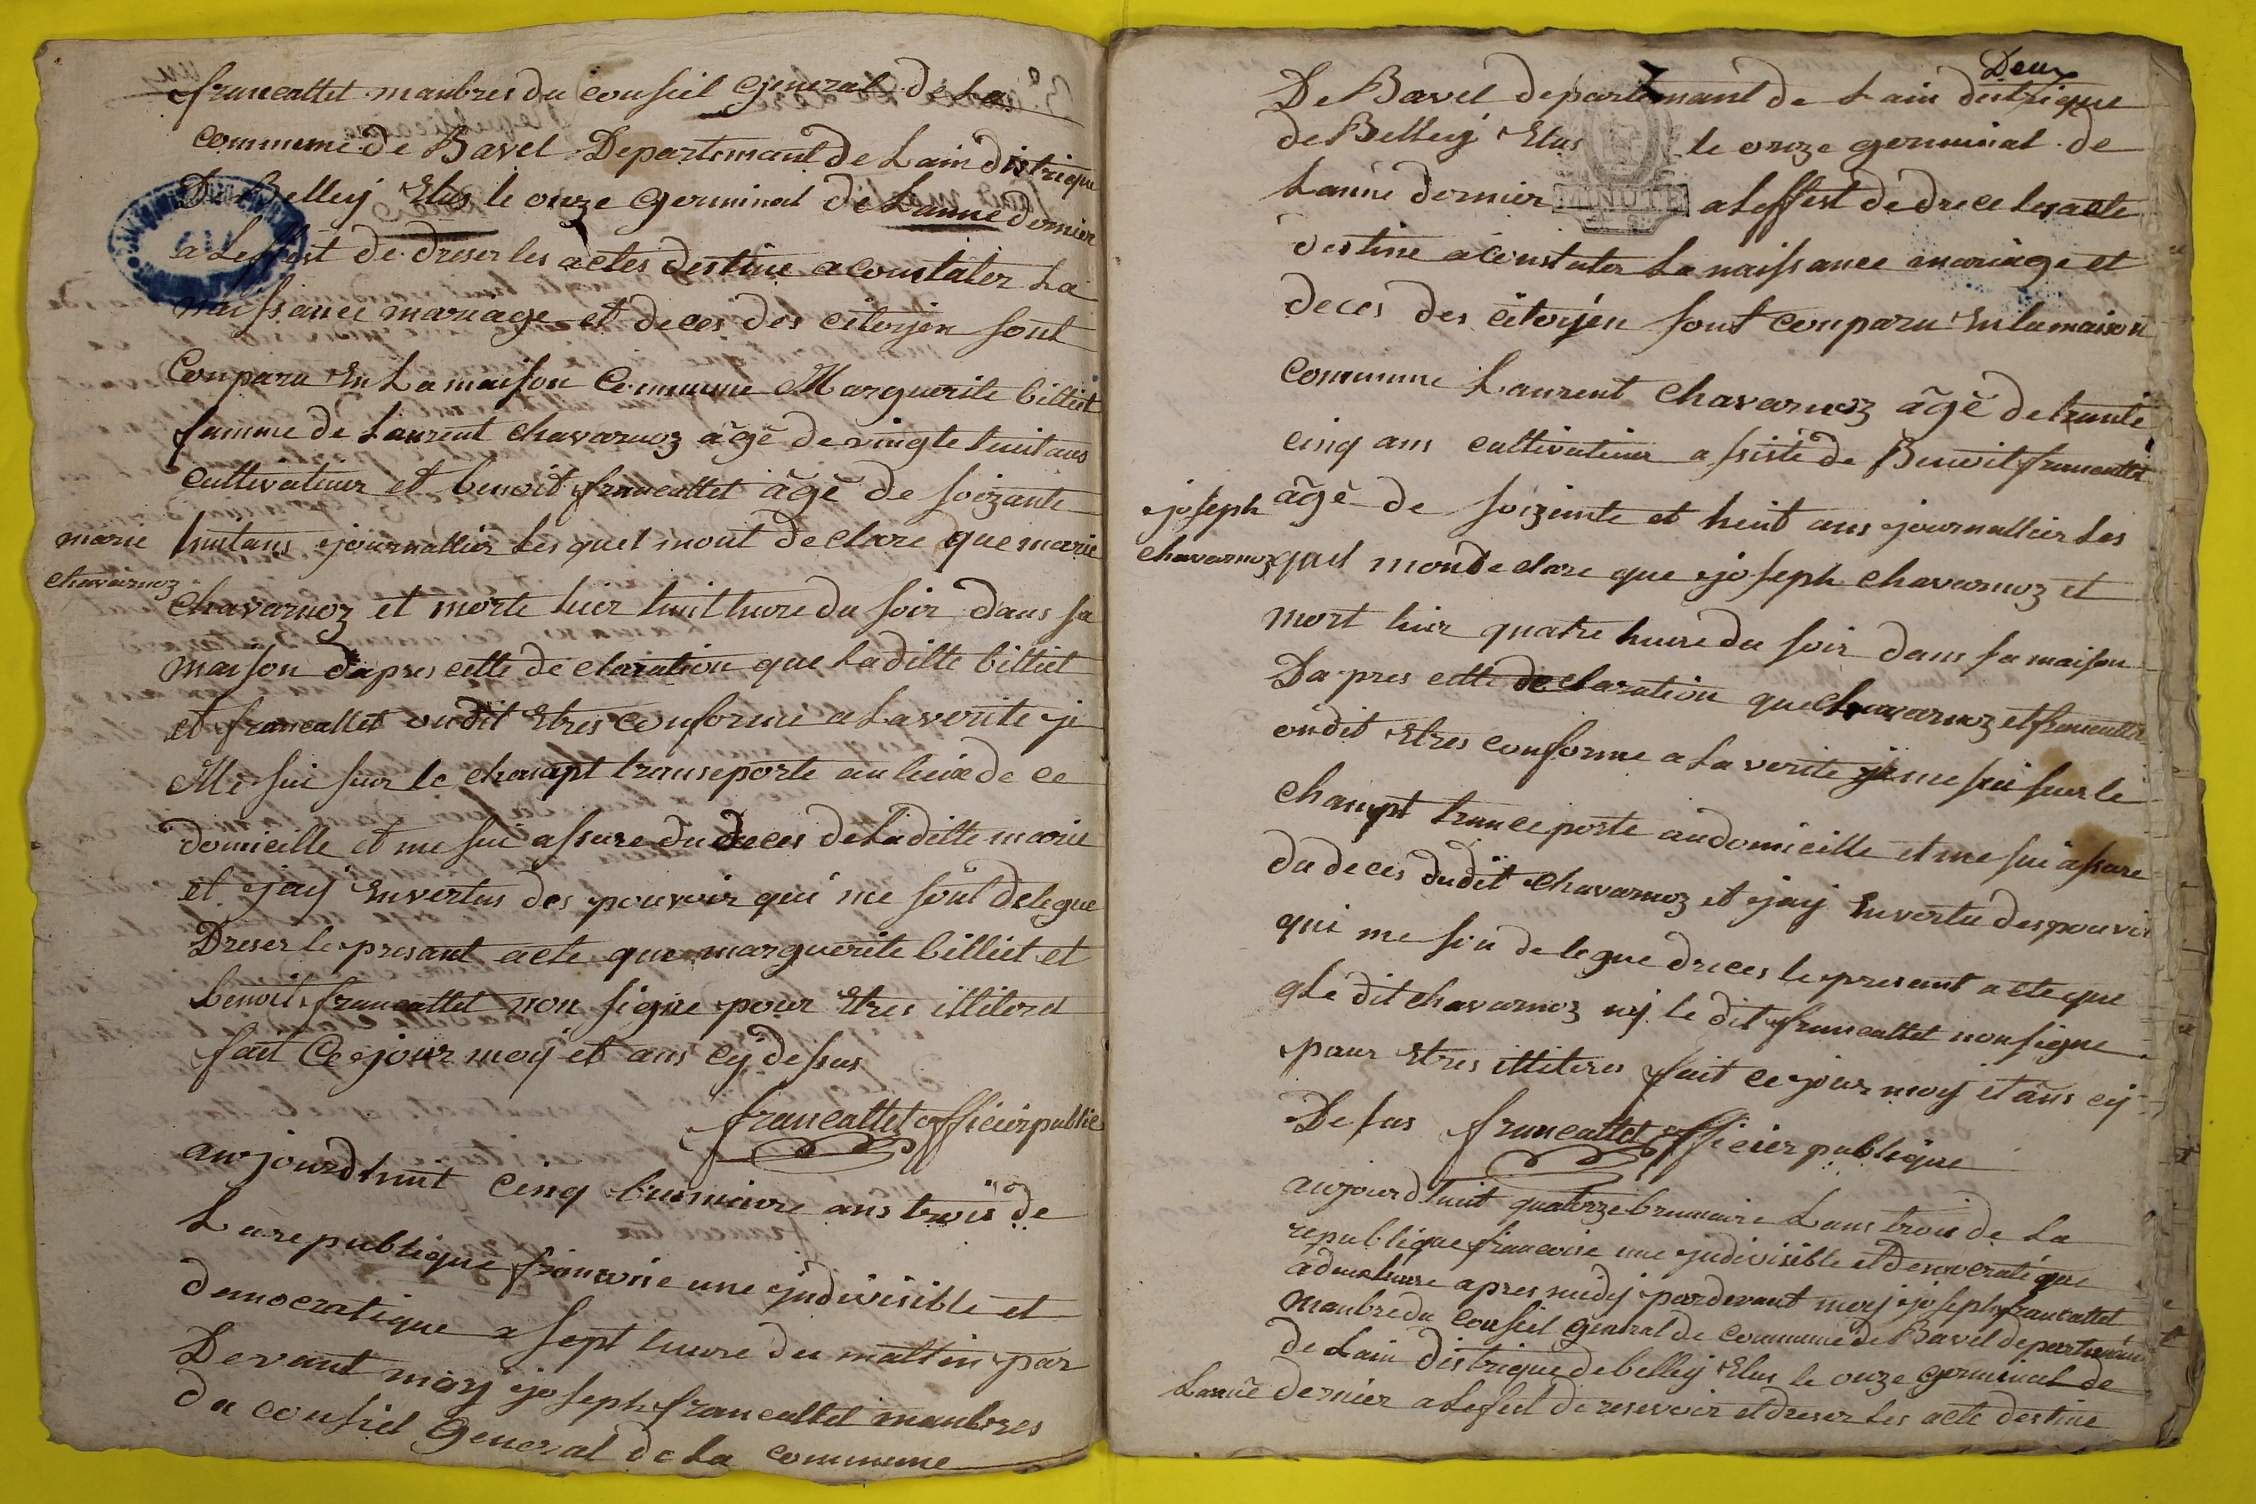 francallet manbres du conseil general de La
commune de Bavel Departemant de Lain distrique
De Belley Elus le onze germinal de Lanne dernier
a Leffest de dreser les actes destine a constater La
naissance mariage et deces des citoyen sont
Conparu En La maison Commune Marguerite billiet
famme de Laurent chavarnoz âgé de vingte huit ans
cultivateur et benoit francallet âgé de soizante
huit ans journallier Les quel mont declare que marie
marie
chavarnoz
chavarnoz et morte hier huit hure du soir dans sa
maison dapres cette declaration que Ladilte billiet
et francallet ondit Etres conforme a La verite je
Me sui sur le chanapt transeporte au lieux de ce
domicille et me sui assure du deces de Ladilte marie
et jay Envertus des pouvoir qui me sout delegue
Dreser le presant acte que marguerite billiet et
benoit francallet non signe pour Etres illiteret
fait Ce jour moy et ans cy desus
francallet officier public
aujourdhuit cinq brumaire ans trois de
La republique francoise une jndivisible et
democratique a sept hure du mattin par
Devant moy joseph francallet manbres
du conseil General de La commune
Deux
De Bavel departemant de Lain distrique
de Belley Elus le onze germinal de
Lanne dernier a Leffest de drece les acte
MINUTE
destine a constater La naissance mariage et
deces des citoyen sont conparu En la maison
commune Laurent chavarnoz âgé de trante
cinq ans cultivateur assisté de Benoit francallet
âgé de soizente et huit ans journallier Les
joseph
chavarnoz
quel monde clare que joseph chavarnoz et
mort hier quatre hure du soir dans sa maison
Da pres cette declaration que chavarnoz et francallet
ondit Etres conforme a La verite je me sui sur le
champt tranceporte au domicille et me sui assure
du deces dudit chavarnoz et jay Envertu des pouvoir
qui me son delegue dreces le presant acte que
qLe dit chavarnoz ny le dit francallet non signe
pour Etres illiteres fait ce jour moy et ans cy
Desus francallet officier publique
aujourdhuit quatorze brumaire Lans trois de La
republique francoise une jndivisible et democratique
a deux hure apres midy par devant moy joseph francallet
manbre du conseil general de commune de Bavel departeman
de Lain distrique de belley Elus le onze germinal de
Lanne dernier a Lefest de resevoir et dreser Les acte destine